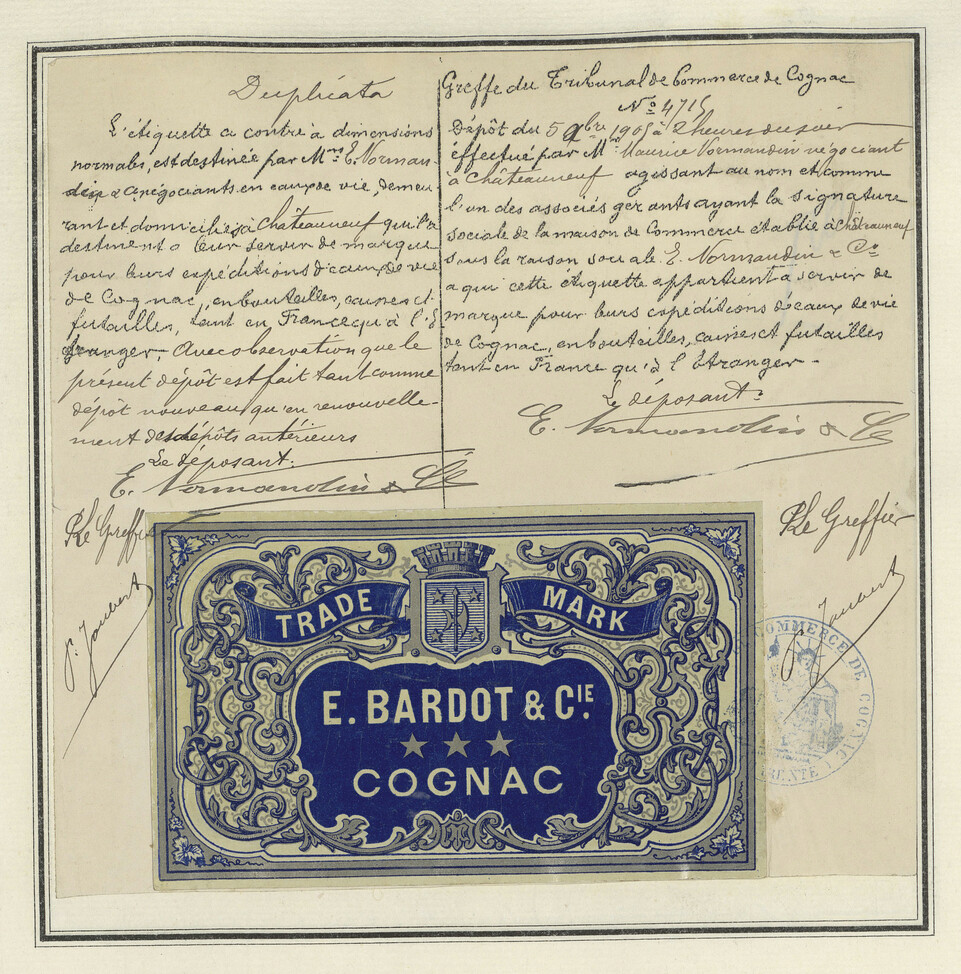 Duplicata
L'étiquette ci contre à dimensions
normales, est destinée par Mrs E. Norman-
din & Cie négociants en eaux de vie, demeu
rant et domiciliés à Châteauneuf qui l'a
destinent à leur servir de marque
pour leurs expéditions d'eaux de vie
de Cognac, en bouteilles, caisses et
futailles, tant en France qu'à l'é
tranger. Avec observation que le
présent dépôt est fait tant comme
dépôt nouveau qu'en renouvelle-
ment des dépôts antérieurs
Le déposant:
E. Normandin & Cie
P Le Greffier
P. Joubert
Greffe du Tribunal de Commerce de Cognac
No 4715
Dépôt du 5 9bre 1905 à 2 heures du soir
effectué par Mr Maurice Normandin négociant
à Châteauneuf agissant au nom et comme
l'un des associés gérants ayant la signature
sociale de la maison de Commerce établie à Châteauneuf
sous la raison sociale E. Normandin & Cie
a qui cette étiquette appartient à servir de
marque pour leurs expéditions d'eaux de vie
de Cognac, en bouteilles, caisses et futailles
tant en France qu'à l'étranger -
Le déposant:
E. Normandin & Cie
P Le Greffier
P. Joubert
TRADE MARK
E. BARDOT & CIE.
COGNAC
COMMERCE DE COGNAC